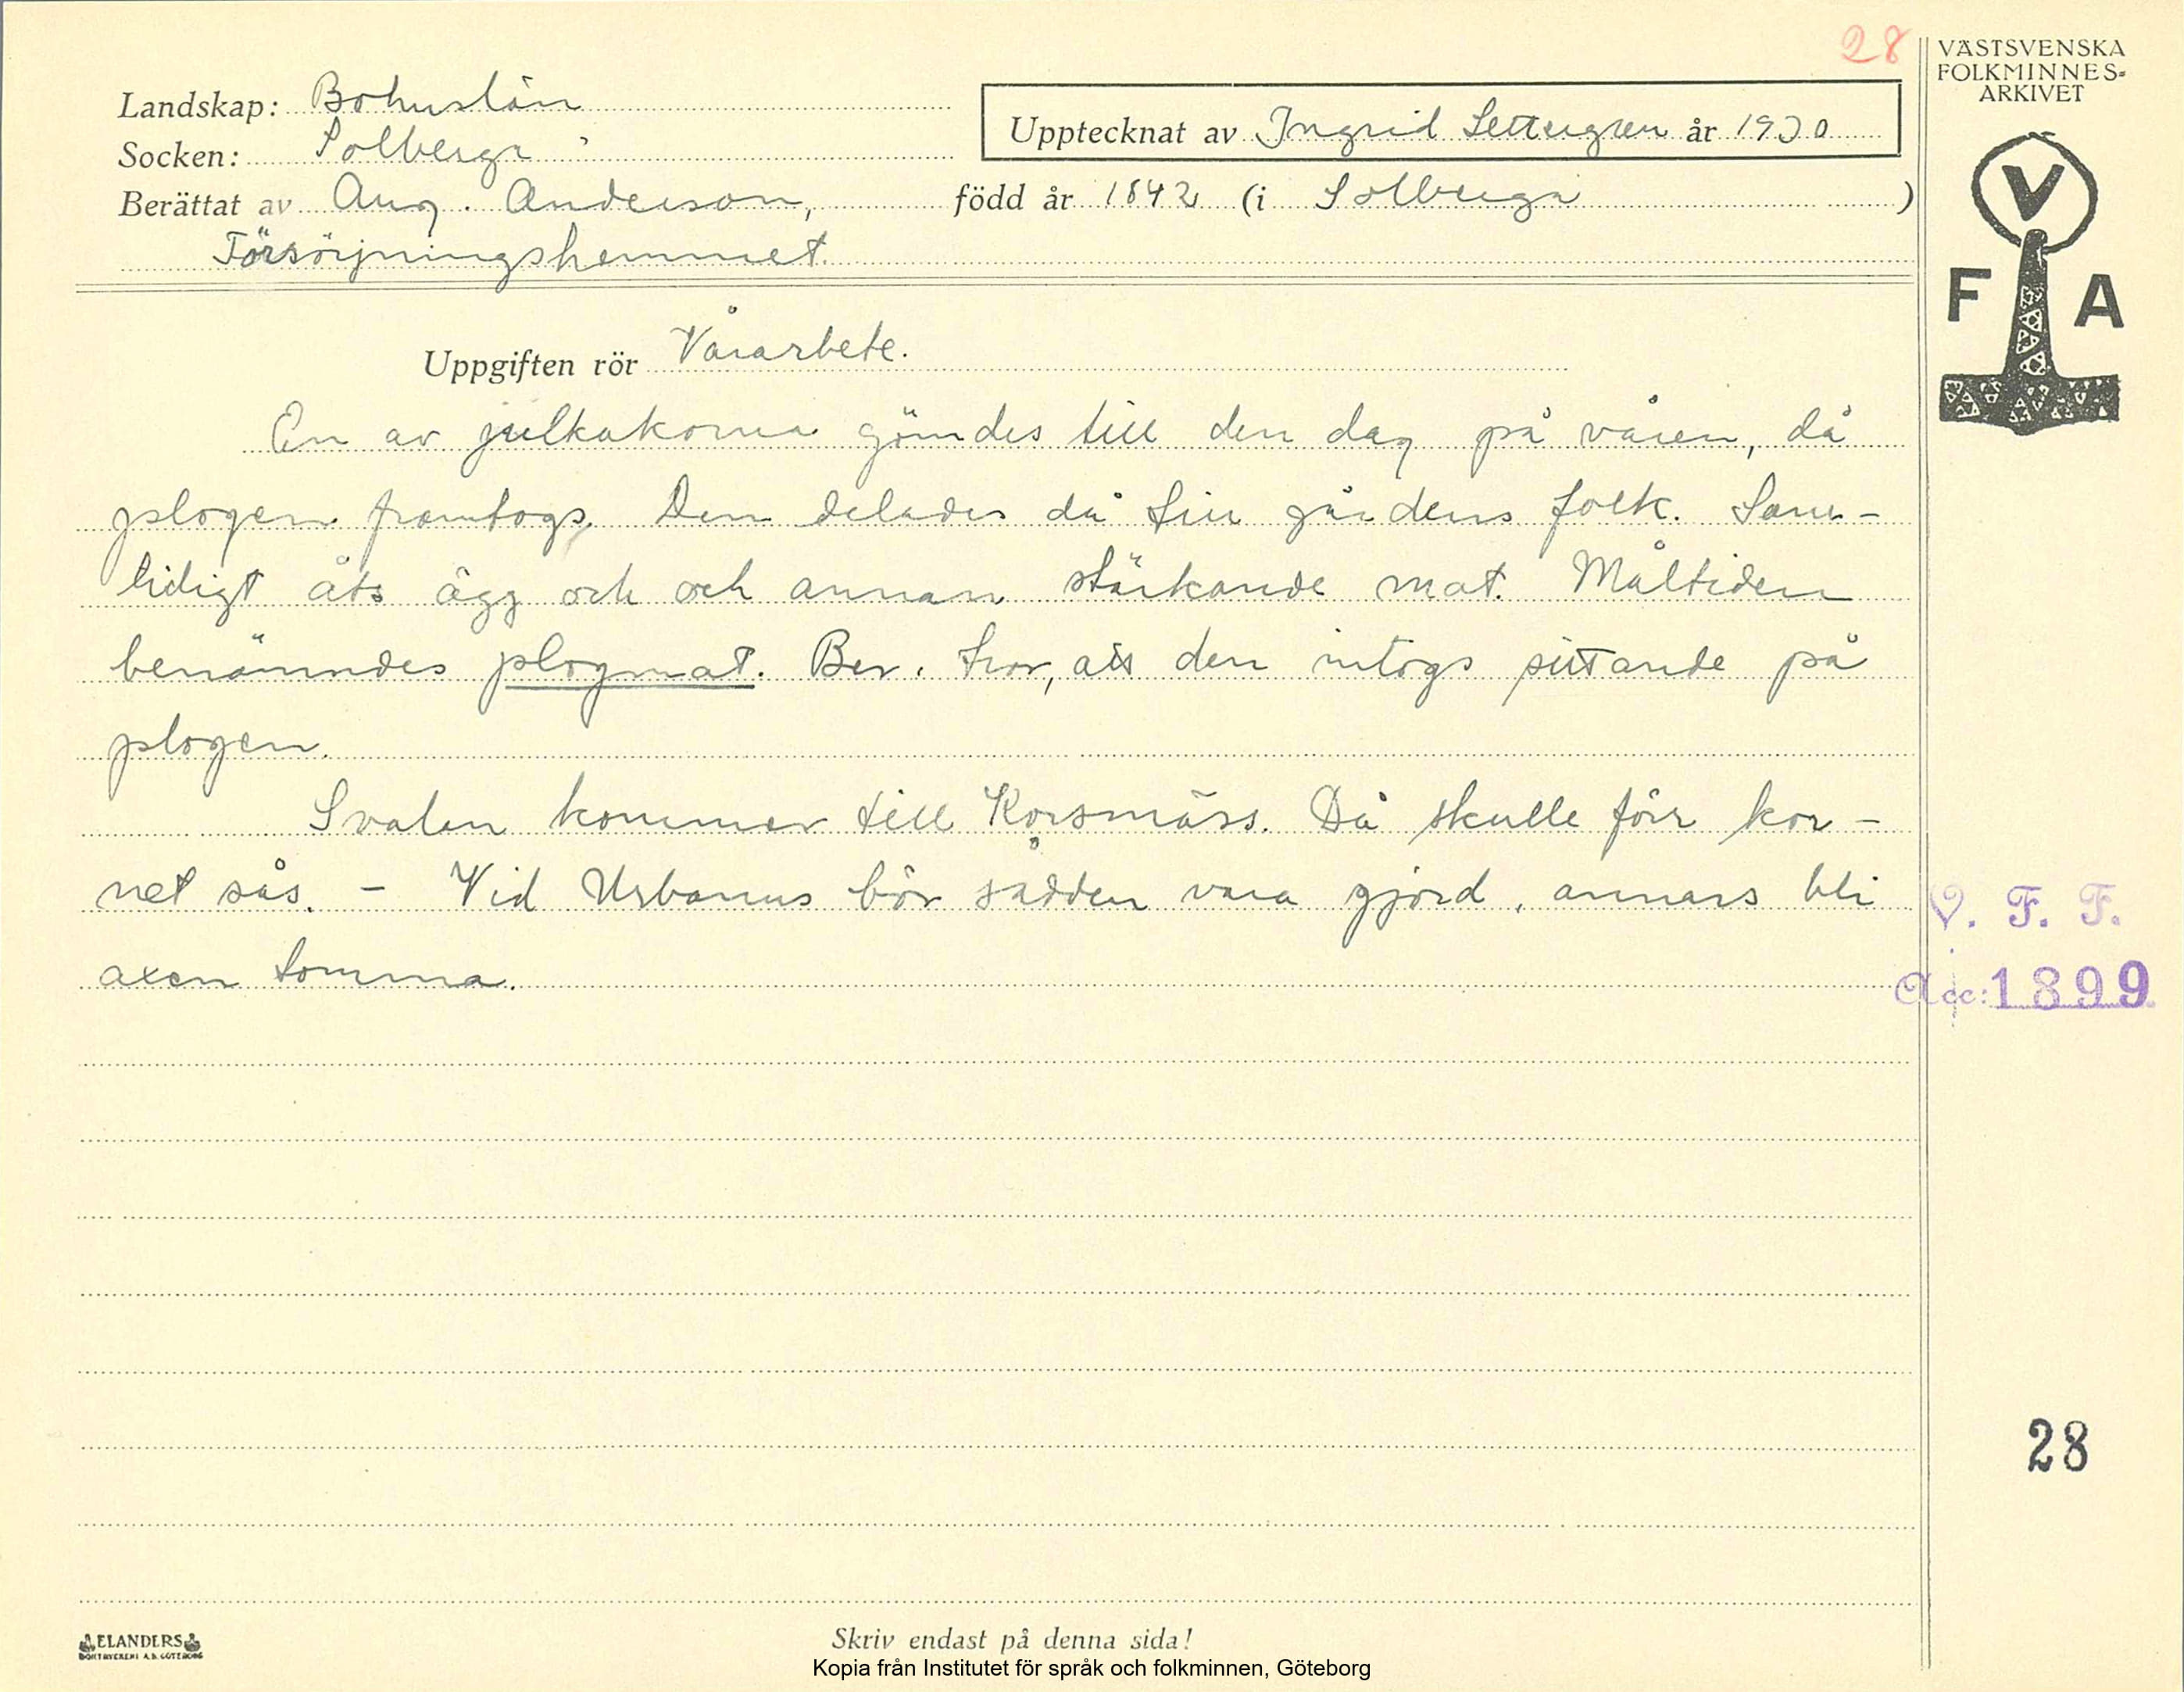 28
VÄSTSVENSKA
FOLKMINNES-
ARKIVET
Landskap: Bohuslän
Upptecknat av Ingrid Settergren år 1930
Socken: Solberga
Berättat av Aug. Anderson, född år 1842 (i Solberga )
Försörjningshemmet.
V
F A
Uppgiften rör Vårarbete.
En av julkakorna gömdes till den dag på våren, då
plogen framtogs. Den delades då till gårdens folk. Sam-
tidigt åts ägg och och annan stärkande mat. Måltiden
benämndes plogmat. Ber. tror, att den intogs sittande på
plogen.
Svalan kommer till Korsmäss. Då skulle förr kor-
net sås. - Vid Urbanus bör sådden vara gjord, annars bli
axen tomma.
V. F. F.
Acc: 1899
28
ELANDERS
BOKTRYCKERI A.B. GÖTEBORG
Skriv endast på denna sida!
Kopia från Institutet för språk och folkminnen, Göteborg